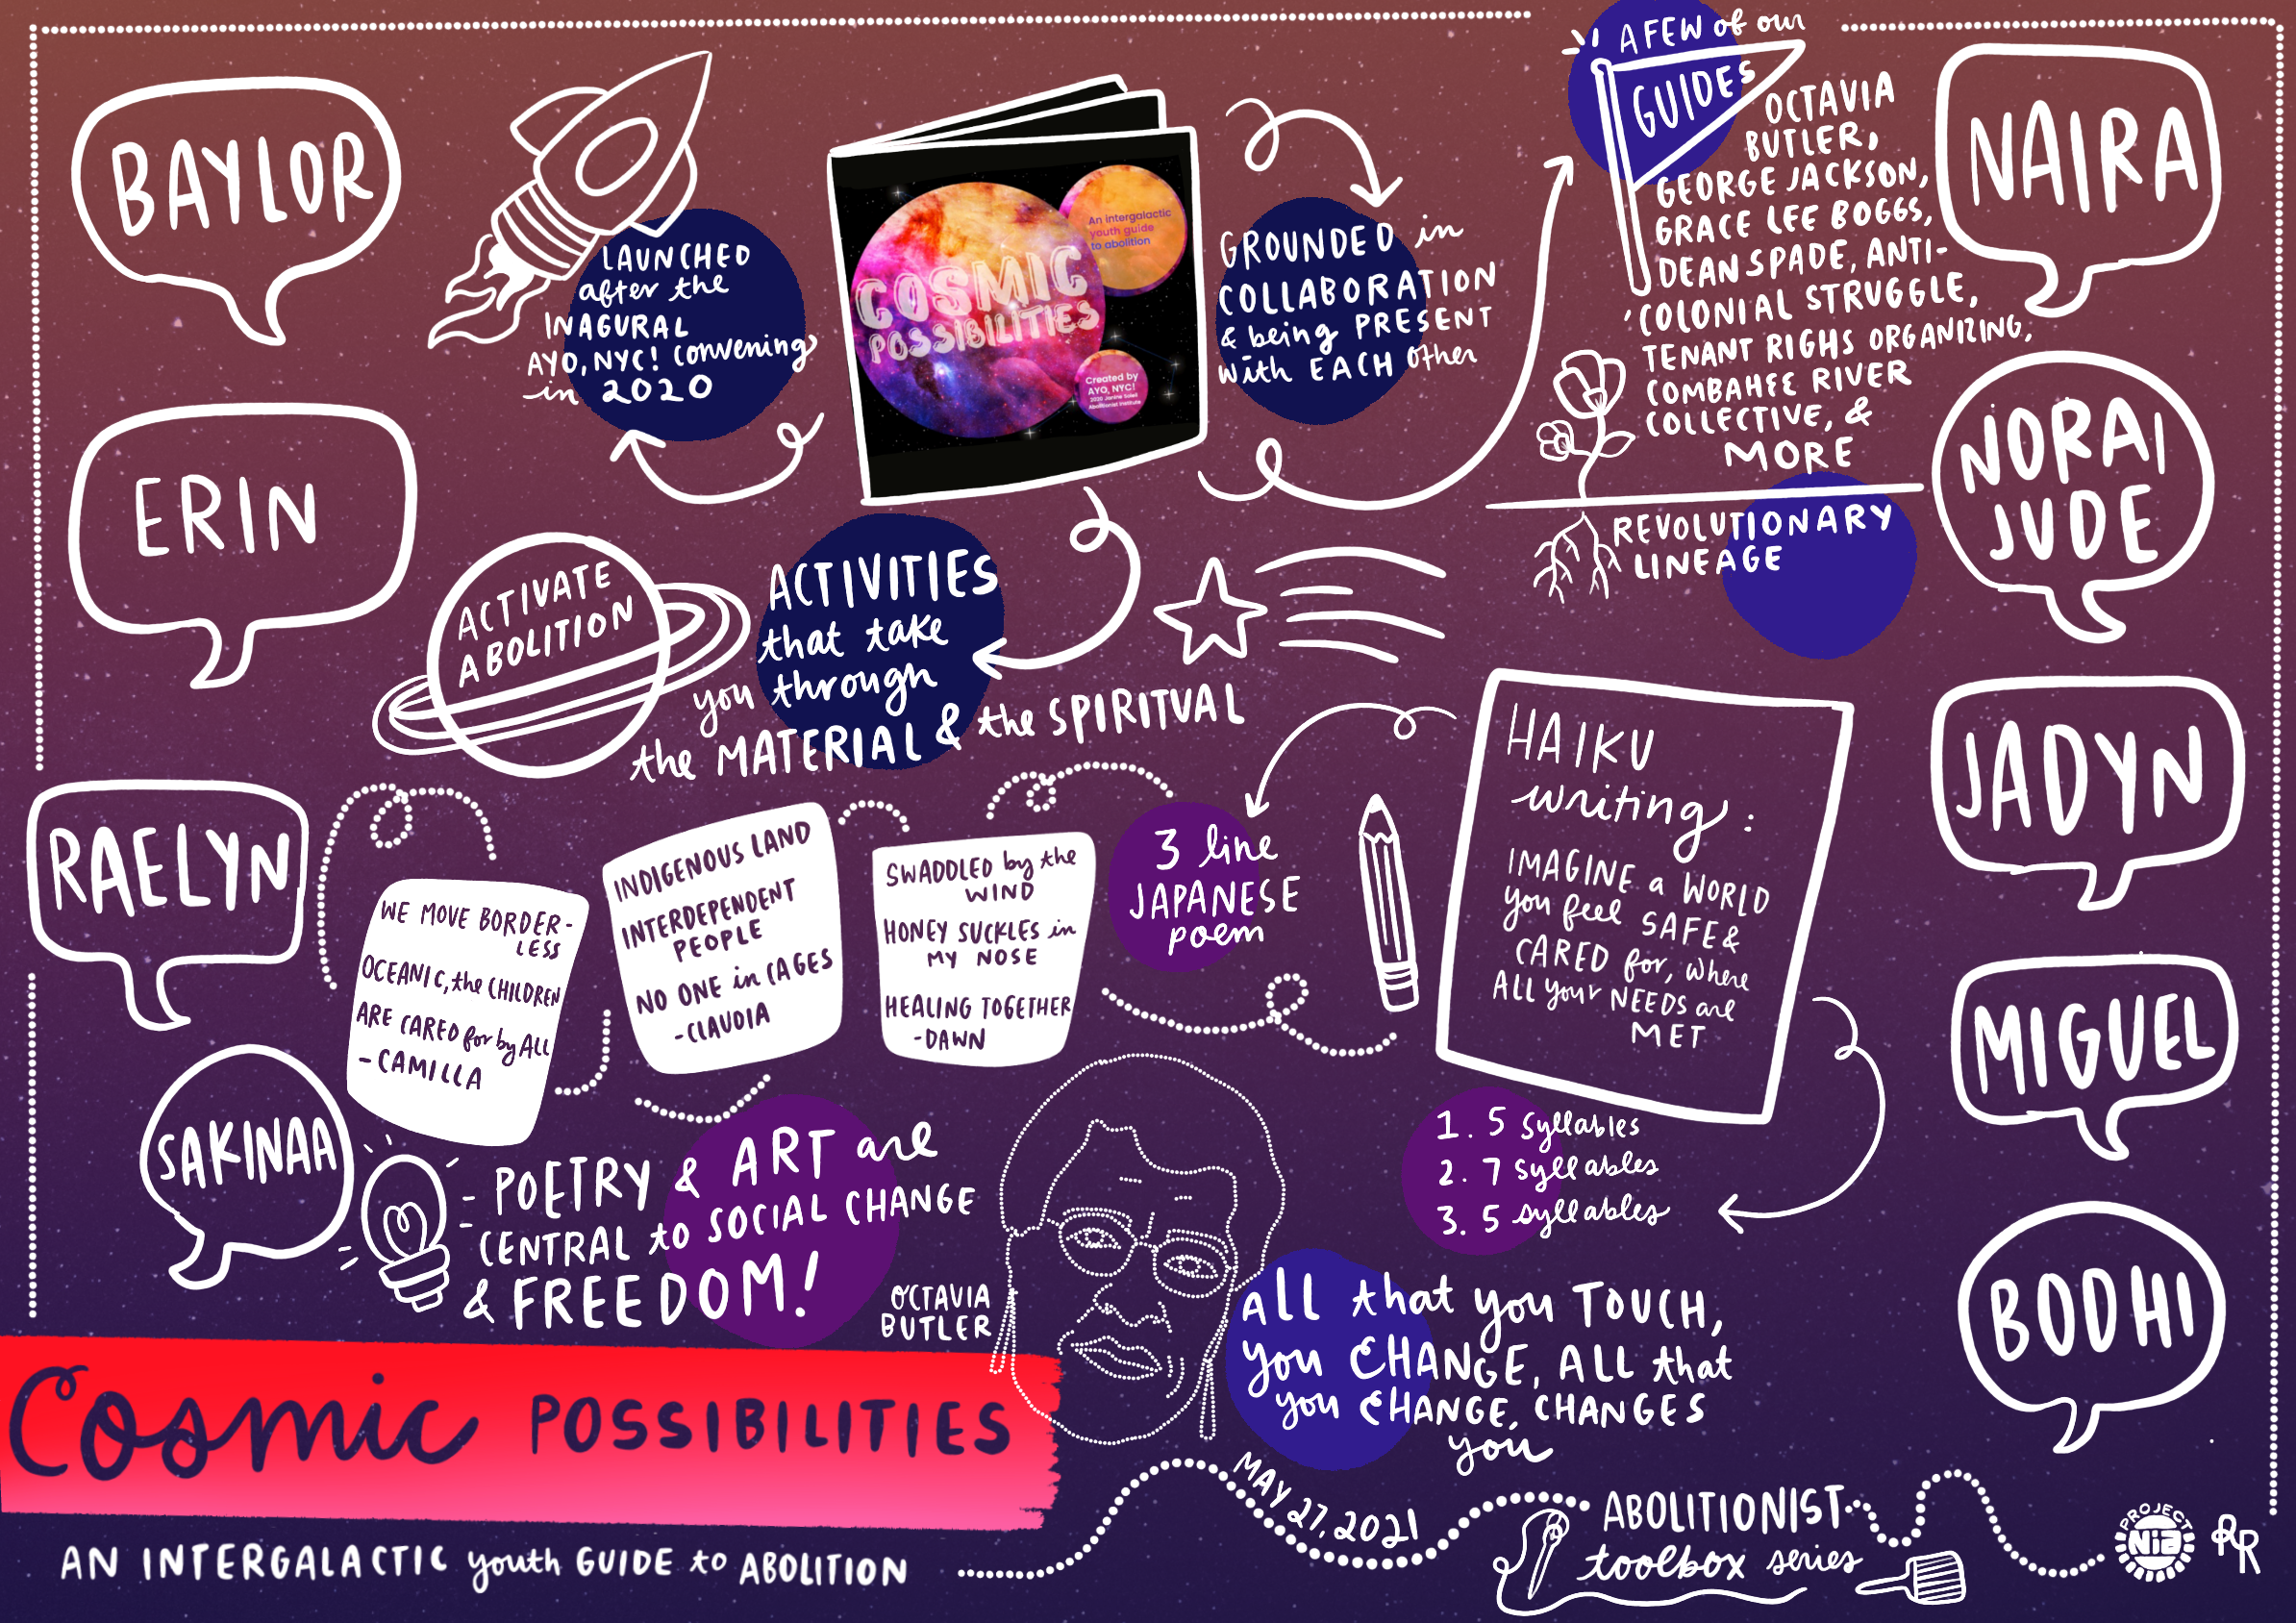 BAYLOR
ERIN
RAELYN
SAKINAA
LAUNCHED
after the
INAGURAL
AYO, NYC! convening
in 2020
COSMIC
POSSIBILITIES
An intergalactic
youth guide
to abolition
Created by
AYO, NYC!
2020 Janine Soleil
Abolitionist Institute
GROUNDED in
COLLABORATION
& being PRESENT
with EACH other
A FEW of our
GUIDES
OCTAVIA
BUTLER,
GEORGE JACKSON,
GRACE LEE BOGGS,
DEAN SPADE, ANTI-
COLONIAL STRUGGLE,
TENANT RIGHS ORGANIZING,
COMBAHEE RIVER
COLLECTIVE, &
MORE
REVOLUTIONARY
LINEAGE
NAIRA
NORAI
JUDE
JADYN
MIGUEL
BODHI
ACTIVATE
ABOLITION
ACTIVITIES
that take
you through
the MATERIAL & the SPIRITUAL
HAIKU
writing:
IMAGINE a WORLD
you feel SAFE &
CARED for, where
ALL your NEEDS are
MET
3 line
JAPANESE
poem
SWADDLED by the
WIND
HONEY SUCKLES in
MY NOSE
HEALING TOGETHER
-DAWN
INDIGENOUS LAND
INTERDEPENDENT
PEOPLE
NO ONE in CAGES
-CLAUDIA
WE MOVE BORDER-
LESS
OCEANIC, the CHILDREN
ARE CARED for by ALL
- CAMILLA
1. 5 syllables
2. 7 syllables
3. 5 syllables
POETRY & ART are
CENTRAL to SOCIAL CHANGE
& FREEDOM!
OCTAVIA
BUTLER
ALL that you TOUCH,
you CHANGE, ALL that
you CHANGE, CHANGES
you
Cosmic POSSIBILITIES
AN INTERGALACTIC youth GUIDE to ABOLITION
MAY 27, 2021
ABOLITIONIST
toolbox series
PROJECT
NIA
RR